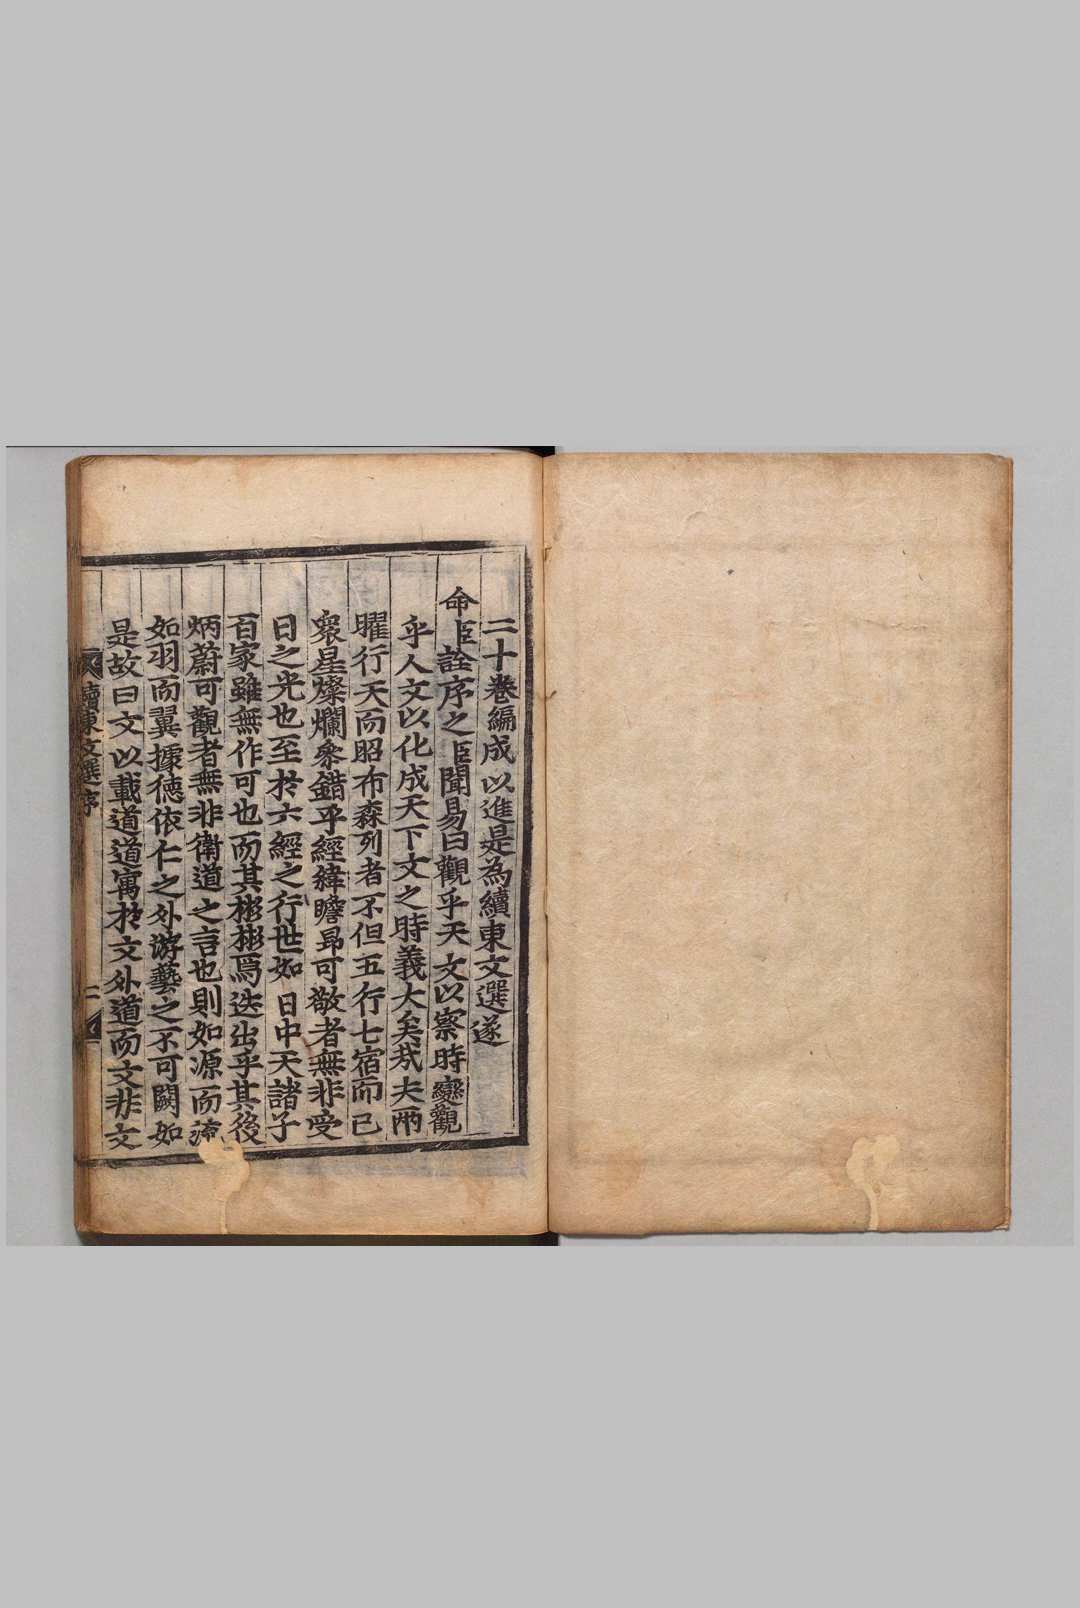 二十卷編成以進是為續東文選遂
命臣詮序之臣聞易曰觀乎天文以察時變觀
乎人文以化成天下文之時義大矣㦲夫兩
曜行天而昭布森列者不但五行七宿而已
衆星燦爛叅錯乎經緯瞻昻可敬者無非受
日之光也至於六經之行世如日中天諸子
百家雖無作可也而其彬彬焉迭出乎其後
炳蔚可觀者無非衛道之言也則如源而流
如羽而翼據德依仁之外游藝之不可闕如
是故曰文以載道道寓於文外道而文非文
續東文選序
二